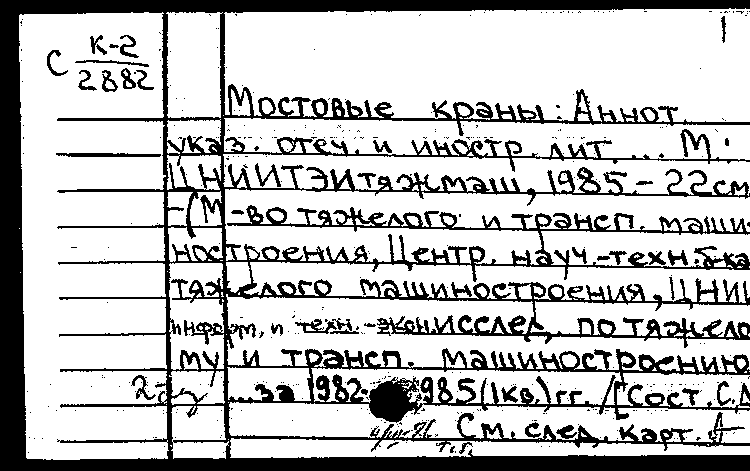 С К-2
2882
Мостовые краны: Аннот.
указ. отеч. и иностр. лит. ... М.:
ЦНИИТЭИтяжмаш, 1985.- 22см
-(М-во тяжелого и трансп. маши-
ностроения, Центр. науч.-техн. б-ка
тяжелого машиностроения, ЦНИИ
информ. и техн.-экон. исслед. по тяжело-
му и трансп. машиностроению
...за 1982- 985(1кв.)гг. /[Сост. С.
См. след. карт.